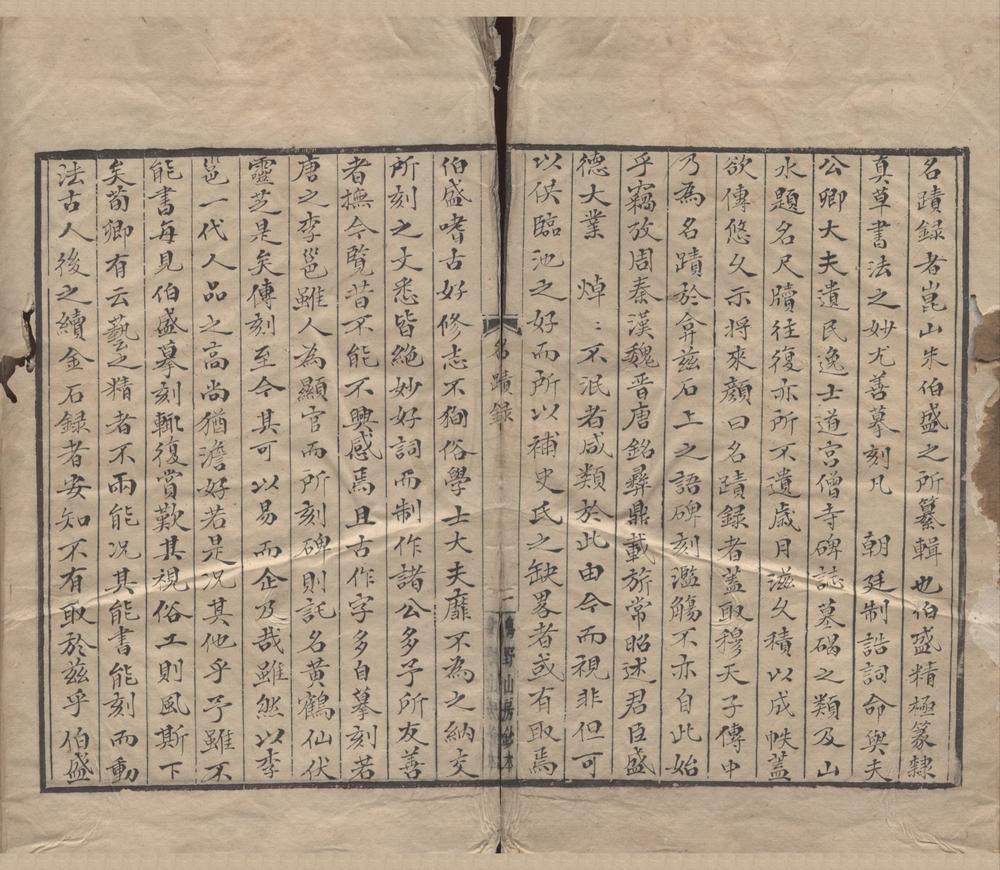 名蹟録者崑山朱伯盛之所纂輯也伯盛精極篆隸
真草書法之妙尤善摹刻凡　朝廷制誥詞命與夫
公卿大夫遺民逸士道宮僧寺碑誌墓碣之類及山
水題名尺牘往復亦所不遺歳月滋久積以成帙蓋
欲傳悠久示將來顔曰名蹟録者蓋取穆天子傳中
乃為名蹟於弇茲石上之語碑刻濫觴不亦自此始
乎竊攷周秦漢魏晋唐銘彛鼎載旂常昭述君臣盛
德大業　焯〻不泯者咸類於此由今而視非但可
以供臨池之好而所以補史氏之缺畧者或有取焉
名蹟録
一
鳴野山房鈔本
伯盛嗜古好修志不狥俗學士大夫靡不為之納交
所刻之文悉皆絶妙好詞而制作諸公多予所友善
者撫今覽昔不能不興感焉且古作字多自摹刻若
唐之李邕雖人為顯官而所刻碑則託名黄鶴仙伏
靈芝是矣傳刻至今其可以易而企及哉雖然以李
邕一代人品之高尚猶澹好若是况其他乎予雖不
能書每見伯盛摹刻輒復賞歎其視俗工則風斯下
矣荀卿有云藝之精者不兩能况其能書能刻而動
法古人後之續金石録者安知不有取於茲乎伯盛